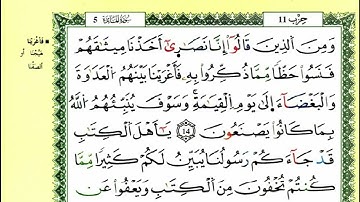 حِزْب 11 سُورَةُ المَائِدَة 5
وَمِنَ ٱلَّذِينَ قَالُوٓا۟ إِنَّا نَصَٰرَىٰٓ أَخَذْنَا مِيثَٰقَهُمْ
فَنَسُوا۟ حَظًّا مِّمَّا ذُكِّرُوا۟ بِهِۦ فَأَغْرَيْنَا بَيْنَهُمُ ٱلْعَدَاوَةَ
وَٱلْبَغْضَآءَ إِلَىٰ يَوْمِ ٱلْقِيَٰمَةِ وَسَوْفَ يُنَبِّئُهُمُ ٱللَّهُ
بِمَا كَانُوا۟ يَصْنَعُونَ 14 يَٰٓأَهْلَ ٱلْكِتَٰبِ
قَدْ جَآءَكُمْ رَسُولُنَا يُبَيِّنُ لَكُمْ كَثِيرًا مِّمَّا
كُنتُمْ تُخْفُونَ مِنَ ٱلْكِتَٰبِ وَيَعْفُوا۟ عَن
فَأَغْرَيْنَا
هيّجنا أو
ألصقنا